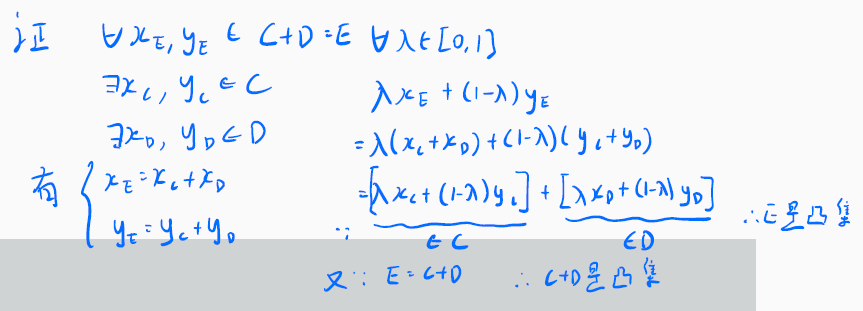 证 ∀x_E, y_E ∈ C+D=E ∀λ∈[0,1]
∃x_C, y_C ∈ C
∃x_D, y_D ∈ D
有 { x_E=x_C+x_D
y_E=y_C+y_D
λx_E+(1-λ)y_E
=λ(x_C+x_D)+(1-λ)(y_C+y_D)
=[λx_C+(1-λ)y_C]+[λx_D+(1-λ)y_D]
∵ ∈C ∈D ∴E是凸集
又∵ E=C+D ∴ C+D是凸集